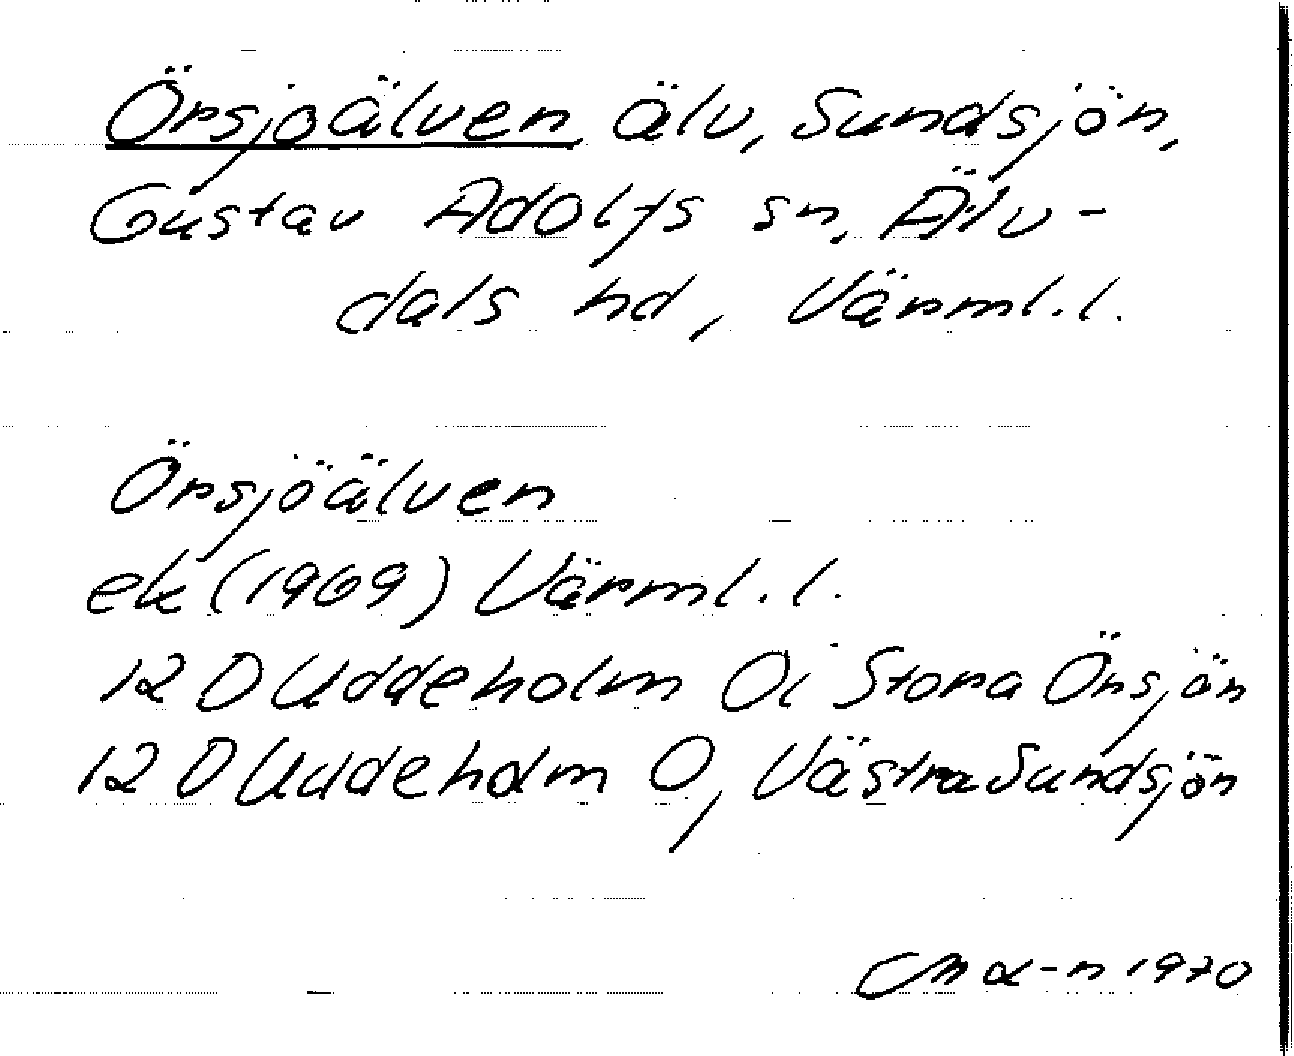 Örsjoälven, älv, Sundsjön,
Gustav Adolfs sn, Älv-
dals hd, Värml.l.
Örsjöälven
ek (1969) Värml.l.
12 D Uddeholm Oi Stora Örsjön
12 D Uddeholm Oj Västra Sundsjön
1970